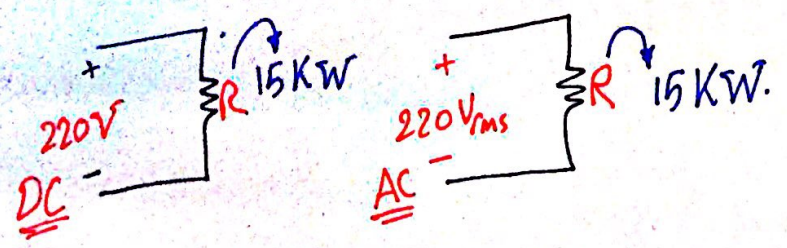 +
220V
-
DC
R
15KW
+
220Vrms
-
AC
R
15KW.